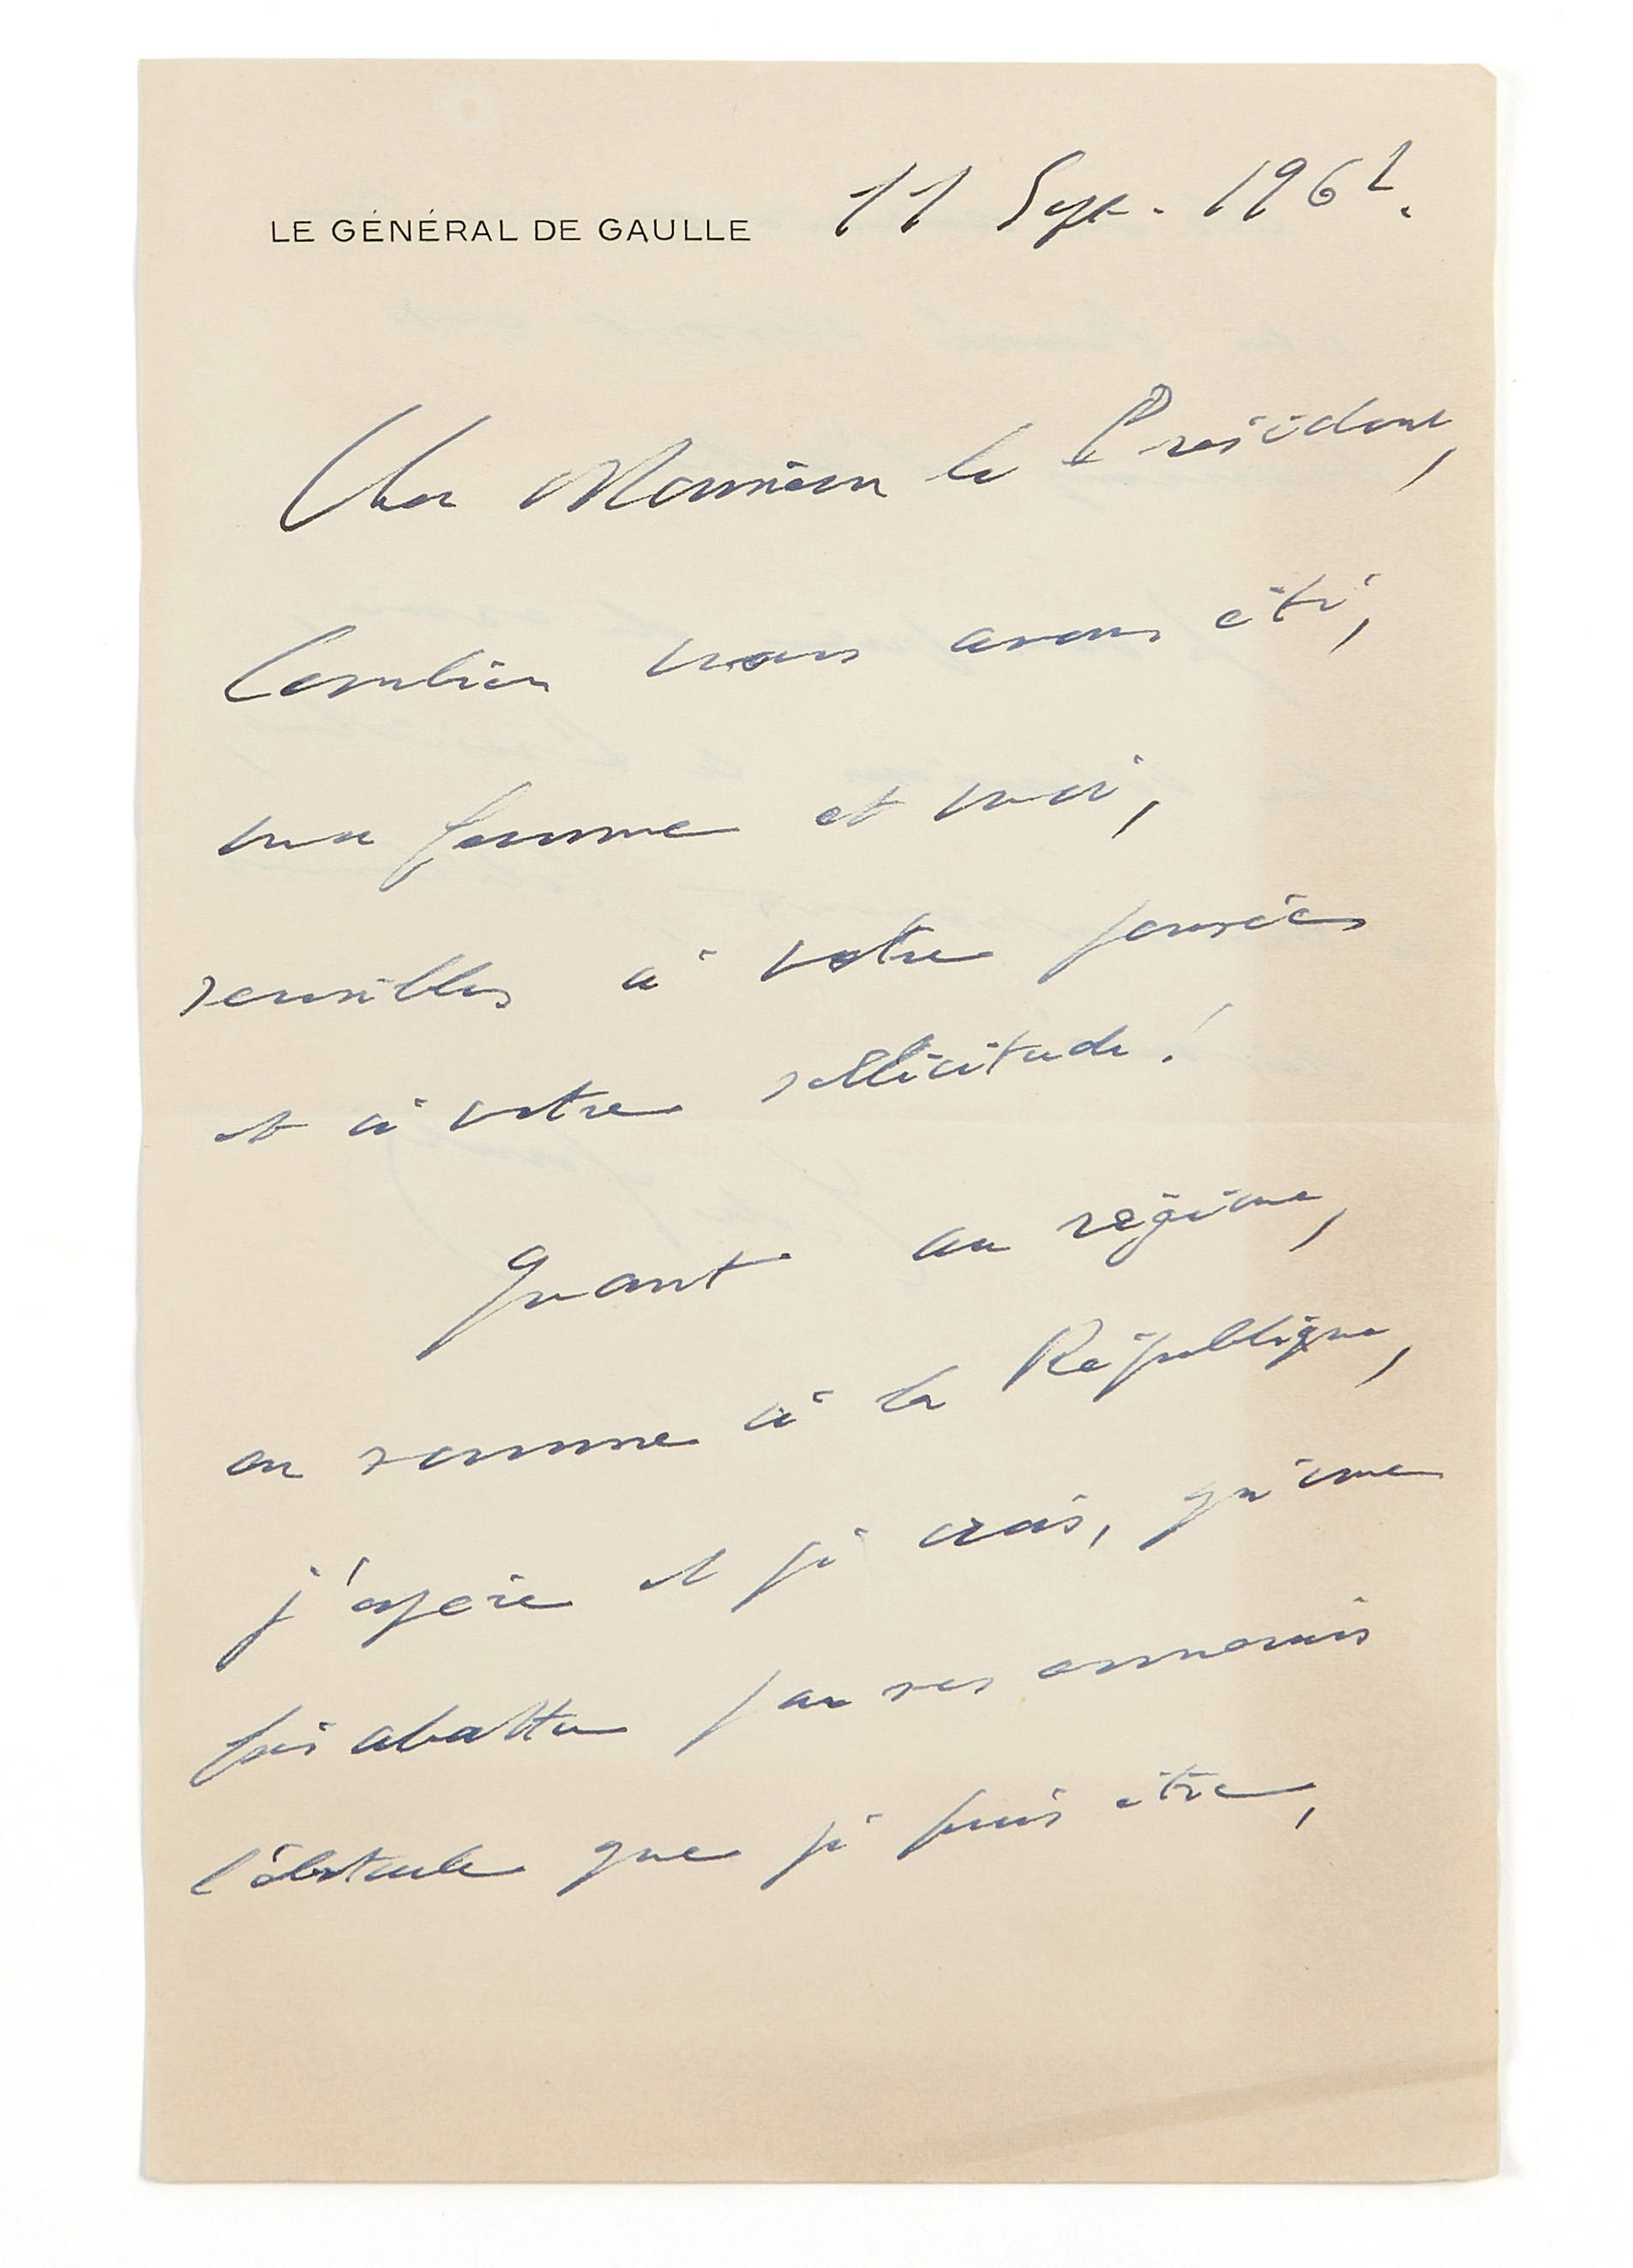 LE GÉNÉRAL DE GAULLE 11 Sept. 1962.
Cher Monsieur le Président,
Combien nous avons été,
ma femme et moi,
sensibles à votre pensée
et à votre sollicitude !
Quant au régime,
en somme à la République,
j'espère et je crois, qu'une
fois abattu par ses ennemis
l'obstacle que je puis être,